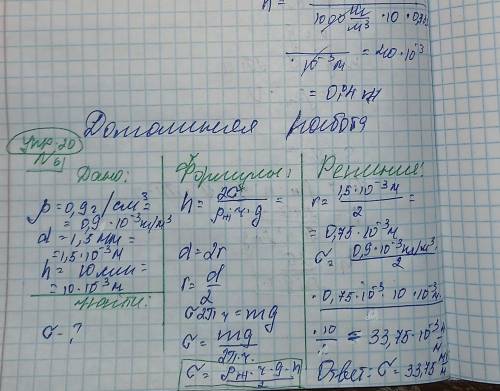 h =
1000 кг/м³ · 10 · 0,
10⁻³ м = 20 · 10⁻³
= 0,04 м
Домашняя работа
Упр. 20
№6)
Дано:
ρ = 0,9 г/см³
= 0,9 · 10⁻³ кг/м³
d = 1,5 мм =
= 1,5 · 10⁻³ м
h = 10 мм =
= 10 · 10⁻³ м
Найти:
σ - ?
Формулы:
h = 2σ / ρж · r · g =
d = 2r
r = d/2
σ 2π r = mg
σ = mg / 2π · r
σ = ρж · r · g · h / 2
Решение:
r = 1,5 · 10⁻³ м / 2 =
= 0,75 · 10⁻³ м
σ = 0,9 · 10⁻³ кг/м³ / 2
· 0,75 · 10⁻³ · 10 · 10⁻³ м
· 10 = 33,75 · 10⁻³ Н/м
Ответ: σ = 33,75